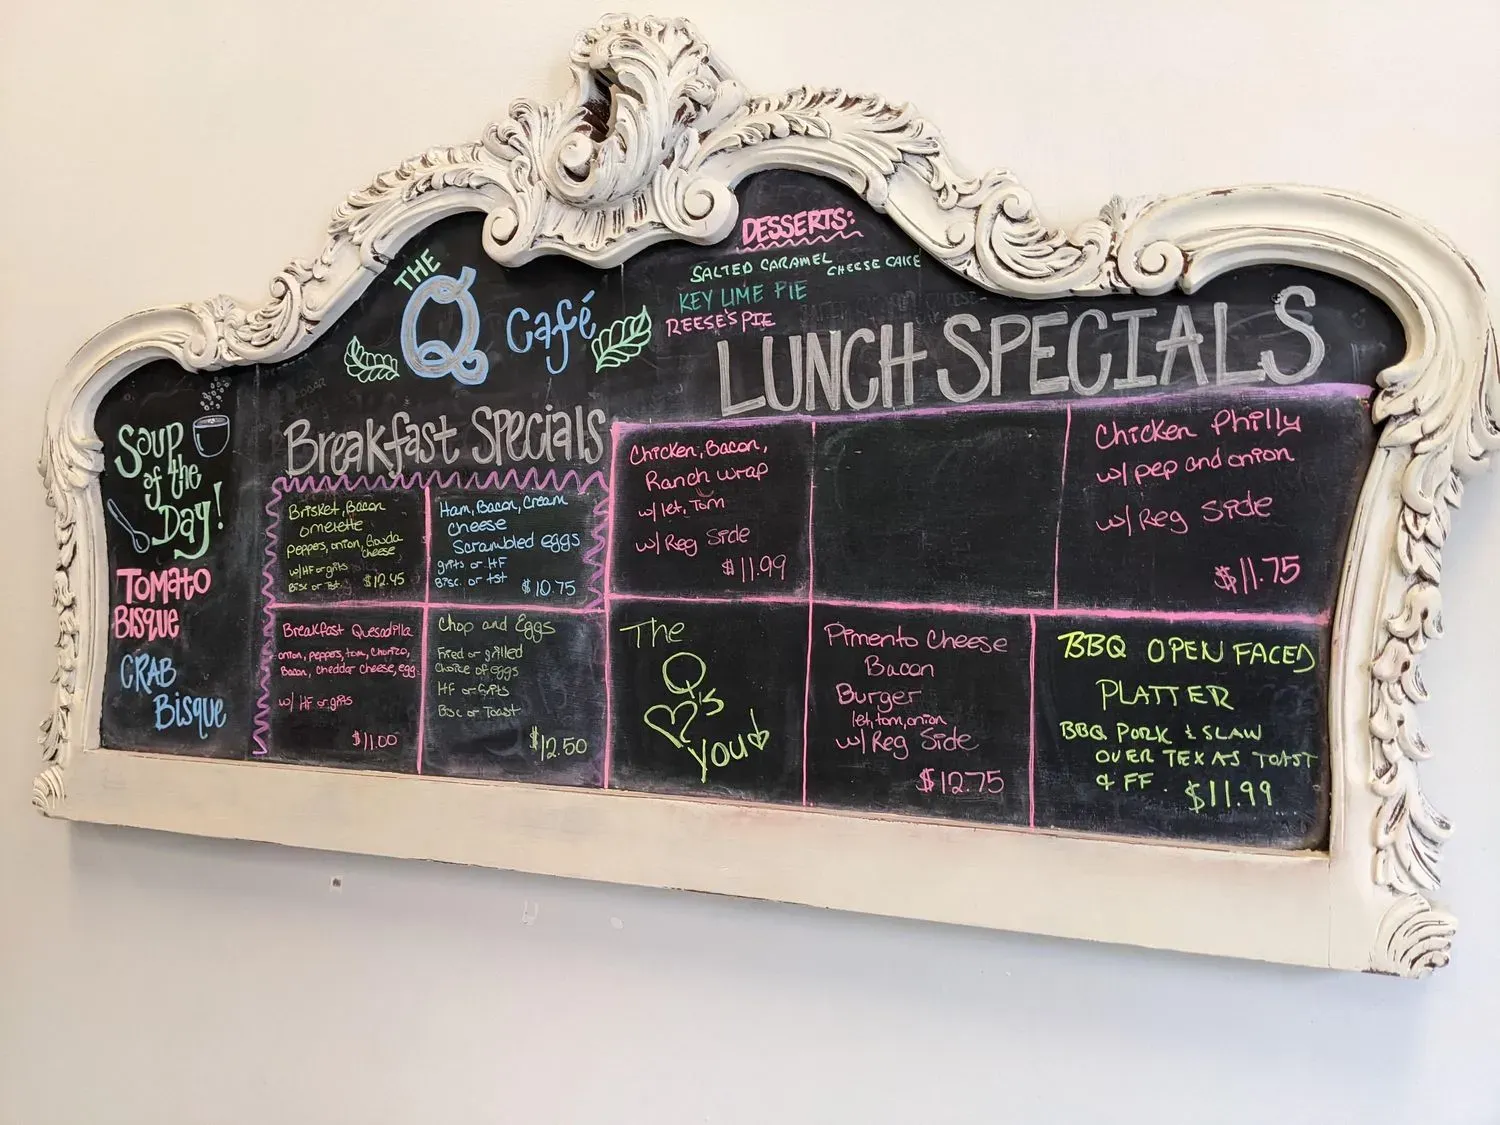 THE
Q Café
DESSERTS:
SALTED CARAMEL CHEESE CAKE
KEY LIME PIE
REESE'S PIE
Soup
of the
Day!
TOMATO
BISQUE
CRAB
Bisque
Breakfast Specials
Brisket, Bacon
omelette
peppers, onion, Gouda
cheese
w/HF or grits
Bisc or Tst $12.45
Ham, Bacon, Cream
Cheese
Scrambled eggs
grits or HF
Bisc. or tst $10.75
Breakfast Quesadilla
onion, peppers, tom, Chorizo,
Bacon, cheddar cheese, egg
w/ HF or grits
$11.00
Chop and Eggs
Fried or grilled
Choice of eggs
HF or Grits
Bisc or Toast
$12.50
LUNCH SPECIALS
Chicken, Bacon,
Ranch wrap
w/ let, Tom
w/ Reg Side
$11.99
Chicken Philly
w/ pep and onion
w/ Reg Side
$11.75
The
Q
♡'s
you
Pimento Cheese
Bacon
Burger
let, tom, onion
w/ Reg Side
$12.75
BBQ OPEN FACED
PLATTER
BBQ PORK & SLAW
OVER TEXAS TOAST
& FF. $11.99